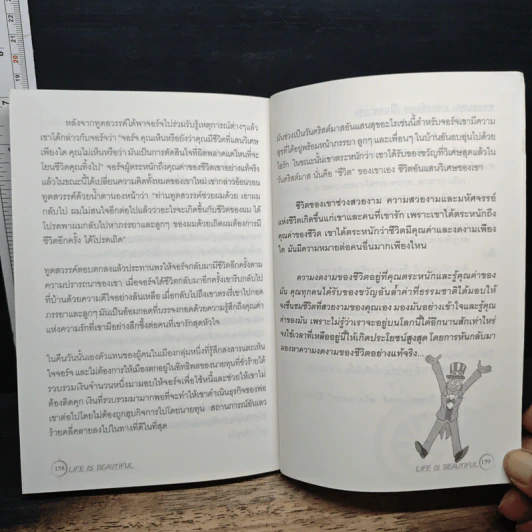 หลังจากทูตสวรรค์ได้พาจอร์จไปร่วมรับรู้เหตุการณ์ต่างๆแล้ว
เขาได้กล่าวกับจอร์จว่า "จอร์จ คุณเห็นหรือยังว่าคุณมีชีวิตที่แสนวิเศษ
เพียงใด คุณไม่เห็นหรือว่า มันเป็นการตัดสินใจที่ผิดพลาดแค่ไหนที่จะ
โยนชีวิตคุณทิ้งไป" จอร์จผู้ตระหนักถึงคุณค่าของชีวิตเขาอย่างแท้จริง
แล้วในขณะนี้ได้เปลี่ยนความคิดทั้งหมดของเขาใหม่ เขากล่าวอ้อนวอน
ทูตสวรรค์ด้วยน้ำตานองหน้าว่า "ท่านทูตสวรรค์ช่วยผมด้วย เอาผม
กลับไป ผมไม่สนใจอีกต่อไปแล้วว่าอะไรจะเกิดขึ้นกับชีวิตของผม ได้
โปรดพาผมกลับไปหาภรรยาและลูกๆ ของผมด้วยเถิดผมต้องการมี
ชีวิตอีกครั้ง ได้โปรดเถิด"
ทูตสวรรค์ตอบตกลงแล้วประทานพรให้จอร์จกลับมามีชีวิตอีกครั้งตาม
ความปรารถนาของเขา เมื่อจอร์จได้ชีวิตกลับมาอีกครั้งเขารีบกลับไป
ที่บ้านด้วยความดีใจอย่างล้นเหลือ เมื่อกลับไปถึงเขาตรงรี่เข้าไปกอด
ภรรยาและลูกๆ มันเป็นอ้อมกอดที่บรรจงกอดด้วยความรู้สึกถึงคุณค่า
แห่งความรักที่เขามีอย่างลึกซึ้งต่อคนที่เขารักสุดหัวใจ
ในคืนวันนั้นเองตัวแทนของผู้คนในเมืองกลุ่มหนึ่งที่รู้สึกสงสารและเห็น
ใจจอร์จ และไม่ต้องการให้เมืองตกอยู่ในอิทธิพลของนายทุนที่ชั่วร้ายได้
รวบรวมเงินจำนวนหนึ่งมามอบให้จอร์จเพื่อใช้หนี้และช่วยให้เขาไม่
ต้องติดคุก เงินที่รวบรวมมามากพอที่จะทำให้เขาดำเนินธุรกิจของพ่อ
เขาต่อไปโดยไม่ต้องถูกฮุบกิจการไปโดยนายทุน สถานการณ์อันเลว
ร้ายคลี่คลายลงไปในทางที่ดีในที่สุด
158 LIFE IS BEAUTIFUL
มันช่างเป็นวันคริสต์มาสอันแสนสุขอะไรเช่นนี้สำหรับจอร์จเขามีความ
สุขที่ได้อยู่พร้อมหน้าภรรยา ลูกๆ และเพื่อนๆ ในบ้านอันอบอุ่นไปด้วย
ไอรัก ในขณะนั้นเขาตระหนักว่า เขาได้รับของขวัญที่วิเศษสุดแล้วใน
วันคริสต์มาส นั่นคือ "ชีวิต" ของเขาเอง ชีวิตอันแสนวิเศษของเขา
ชีวิตของเขาช่างสวยงาม ความสวยงามและมหัศจรรย์
แห่งชีวิตเกิดขึ้นแก่เขาและคนที่เขารัก เพราะเขาได้ตระหนักถึง
คุณค่าของชีวิต เขาได้ตระหนักว่าชีวิตมีคุณค่าและงดงามเพียง
ใด มันมีความหมายต่อคนอื่นมากเพียงไหน
ความงดงามของชีวิตอยู่ที่คุณตระหนักและรู้คุณค่าของ
มัน คุณทุกคนได้รับของขวัญอันล้ำค่าที่ธรรมชาติได้มอบให้
จงชื่นชมชีวิตที่สวยงามของคุณเอง มองมันอย่างเข้าใจและรู้คุณ
ค่าของมัน เพราะไม่รู้ว่าเราจะอยู่บนโลกนี้ได้อีกนานสักเท่าไหร่
จงใช้เวลาที่เหลืออยู่นี้ให้เกิดประโยชน์สูงสุด โดยการหันกลับมา
มองหาความงดงามของชีวิตอย่างแท้จริง...
LIFE IS BEAUTIFUL 159